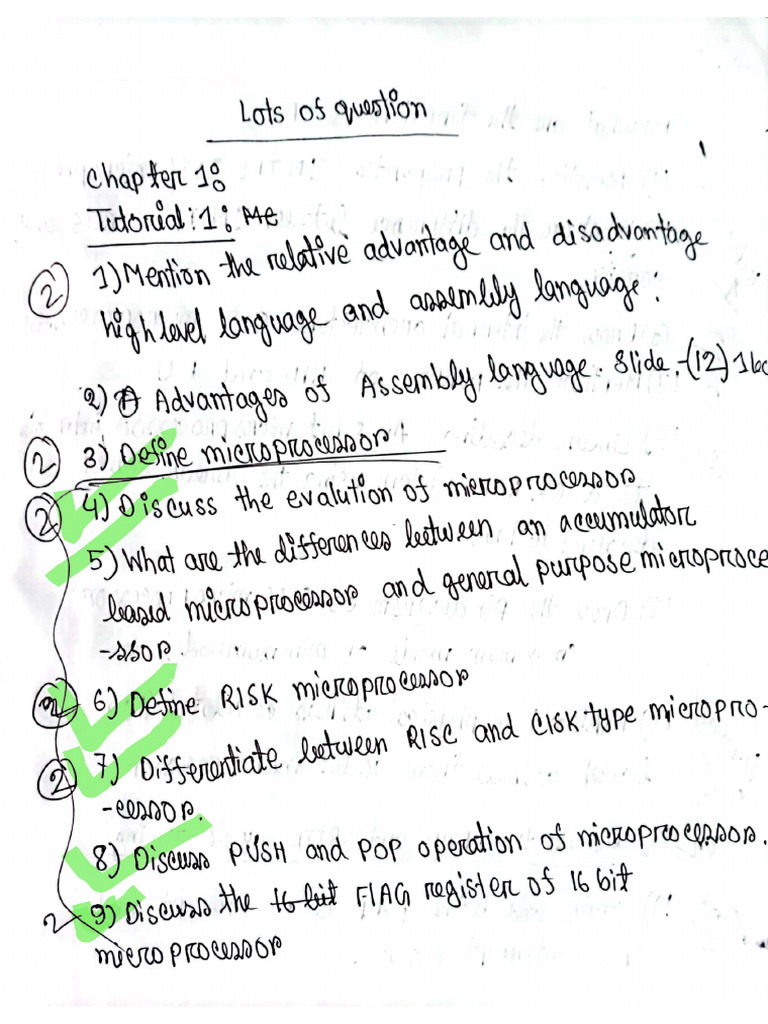 Lots of question
Chapter 1:
Tutorial: 1: Me
② 1) Mention the relative advantage and disadvantage
high level language and assembly language.
2) A Advantages of Assembly language. Slide-(12) 1
② 3) Define microprocessor
② 4) Discuss the evalution of microprocessor
5) What are the differences between an accumulator
based microprocessor and general purpose microproce
-ssor.
② 6) Define RISK microprocessor
② 7) Differentiate between RISC and CISK type micropro-
-cessor.
8) Discuss PUSH and POP operation of microprocessor.
2 9) Discuss the 16 bit FlAG register of 16 bit
microprocessor